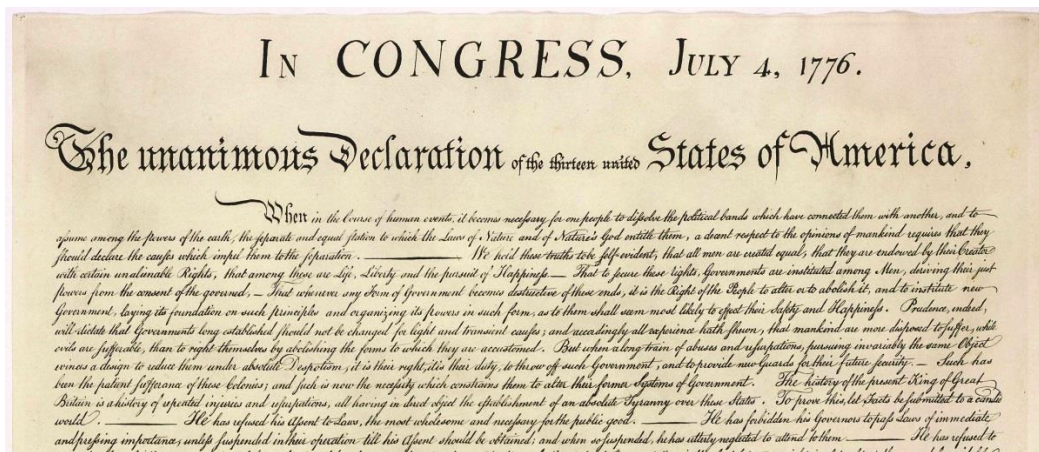 IN CONGRESS, JULY 4, 1776.
The unanimous Declaration of the thirteen united States of America,
When in the Course of human events, it becomes necessary for one people to dissolve the political bands which have connected them with another, and to
assume among the powers of the earth, the separate and equal station to which the Laws of Nature and of Nature's God entitle them, a decent respect to the opinions of mankind requires that they
should declare the causes which impel them to the separation. — We hold these truths to be self-evident, that all men are created equal, that they are endowed by their Creator
with certain unalienable Rights, that among these are Life, Liberty and the pursuit of Happiness — That to secure these rights, Governments are instituted among Men, deriving their just
powers from the consent of the governed, — That whenever any Form of Government becomes destructive of these ends, it is the Right of the People to alter or to abolish it, and to institute new
Government, laying its foundation on such principles and organizing its powers in such form, as to them shall seem most likely to effect their Safety and Happiness. Prudence, indeed,
will dictate that Governments long established should not be changed for light and transient causes; and accordingly all experience hath shewn, that mankind are more disposed to suffer, while
evils are sufferable, than to right themselves by abolishing the forms to which they are accustomed. But when a long train of abuses and usurpations, pursuing invariably the same Object
evinces a design to reduce them under absolute Despotism, it is their right, it is their duty, to throw off such Government, and to provide new Guards for their future security. — Such has
been the patient sufferance of these Colonies; and such is now the necessity which constrains them to alter their former Systems of Government. The history of the present King of Great
Britain is a history of repeated injuries and usurpations, all having in direct object the establishment of an absolute Tyranny over these States. To prove this, let Facts be submitted to a candid
world. — He has refused his Assent to Laws, the most wholesome and necessary for the public good. — He has forbidden his Governors to pass Laws of immediate
and pressing importance, unless suspended in their operation till his Assent should be obtained; and when so suspended, he has utterly neglected to attend to them. — He has refused to